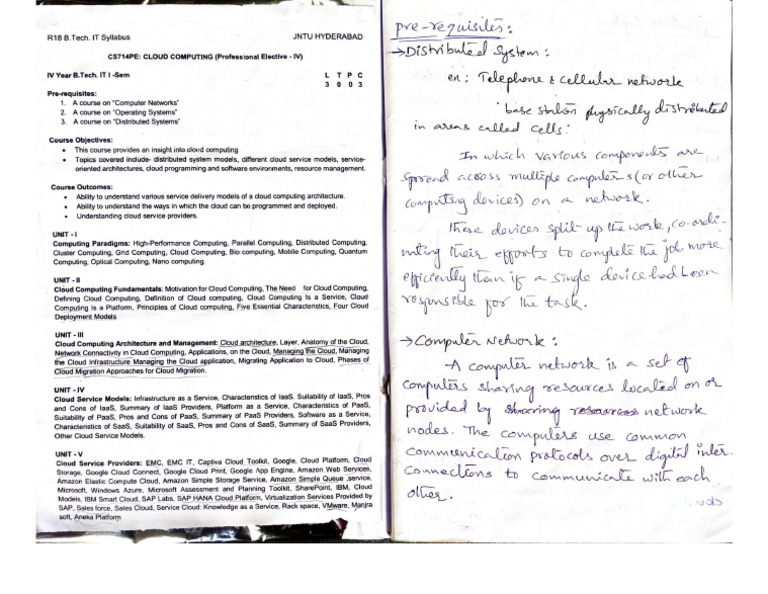 R18 B.Tech. IT Syllabus JNTU HYDERABAD
CS714PE: CLOUD COMPUTING (Professional Elective - IV)
IV Year B.Tech. IT I -Sem L T P C
3 0 0 3
Pre-requisites:
1. A course on "Computer Networks"
2. A course on "Operating Systems"
3. A course on "Distributed Systems"
Course Objectives:
• This course provides an insight into cloud computing
• Topics covered include- distributed system models, different cloud service models, service-
oriented architectures, cloud programming and software environments, resource management.
Course Outcomes:
• Ability to understand various service delivery models of a cloud computing architecture.
• Ability to understand the ways in which the cloud can be programmed and deployed.
• Understanding cloud service providers.
UNIT - I
Computing Paradigms: High-Performance Computing, Parallel Computing, Distributed Computing,
Cluster Computing, Grid Computing, Cloud Computing, Bio computing, Mobile Computing, Quantum
Computing, Optical Computing, Nano computing.
UNIT - II
Cloud Computing Fundamentals: Motivation for Cloud Computing, The Need for Cloud Computing,
Defining Cloud Computing, Definition of Cloud computing, Cloud Computing Is a Service, Cloud
Computing Is a Platform, Principles of Cloud computing, Five Essential Characteristics, Four Cloud
Deployment Models
UNIT - III
Cloud Computing Architecture and Management: Cloud architecture, Layer, Anatomy of the Cloud,
Network Connectivity in Cloud Computing, Applications, on the Cloud, Managing the Cloud, Managing
the Cloud Infrastructure Managing the Cloud application, Migrating Application to Cloud, Phases of
Cloud Migration Approaches for Cloud Migration.
UNIT - IV
Cloud Service Models: Infrastructure as a Service, Characteristics of IaaS. Suitability of IaaS, Pros
and Cons of IaaS, Summary of IaaS Providers, Platform as a Service, Characteristics of PaaS,
Suitability of PaaS, Pros and Cons of PaaS, Summary of PaaS Providers, Software as a Service,
Characteristics of SaaS, Suitability of SaaS, Pros and Cons of SaaS, Summary of SaaS Providers,
Other Cloud Service Models.
UNIT - V
Cloud Service Providers: EMC, EMC IT, Captiva Cloud Toolkit, Google, Cloud Platform, Cloud
Storage, Google Cloud Connect, Google Cloud Print, Google App Engine, Amazon Web Services,
Amazon Elastic Compute Cloud, Amazon Simple Storage Service, Amazon Simple Queue ,service,
Microsoft, Windows Azure, Microsoft Assessment and Planning Toolkit, SharePoint, IBM, Cloud
Models, IBM Smart Cloud, SAP Labs, SAP HANA Cloud Platform, Virtualization Services Provided by
SAP, Sales force, Sales Cloud, Service Cloud: Knowledge as a Service, Rack space, VMware, Manjra
soft, Aneka Platform
pre-requisites:
→Distributed System:
en: Telephone & cellular network
base station physically distributed
in areas called cells.
In which various components are
spread across multiple computers(or other
computing devices) on a network.
These devices split up the work, co-ordi-
nating their efforts to complete the job more
efficiently than if a single device had been
responsible for the task.
→Computer Network:
-A computer network is a set of
computers sharing resources located on or
provided by sharing resources network
nodes. The computers use common
communication protocols over digital inter.
connections to communicate with each
other.